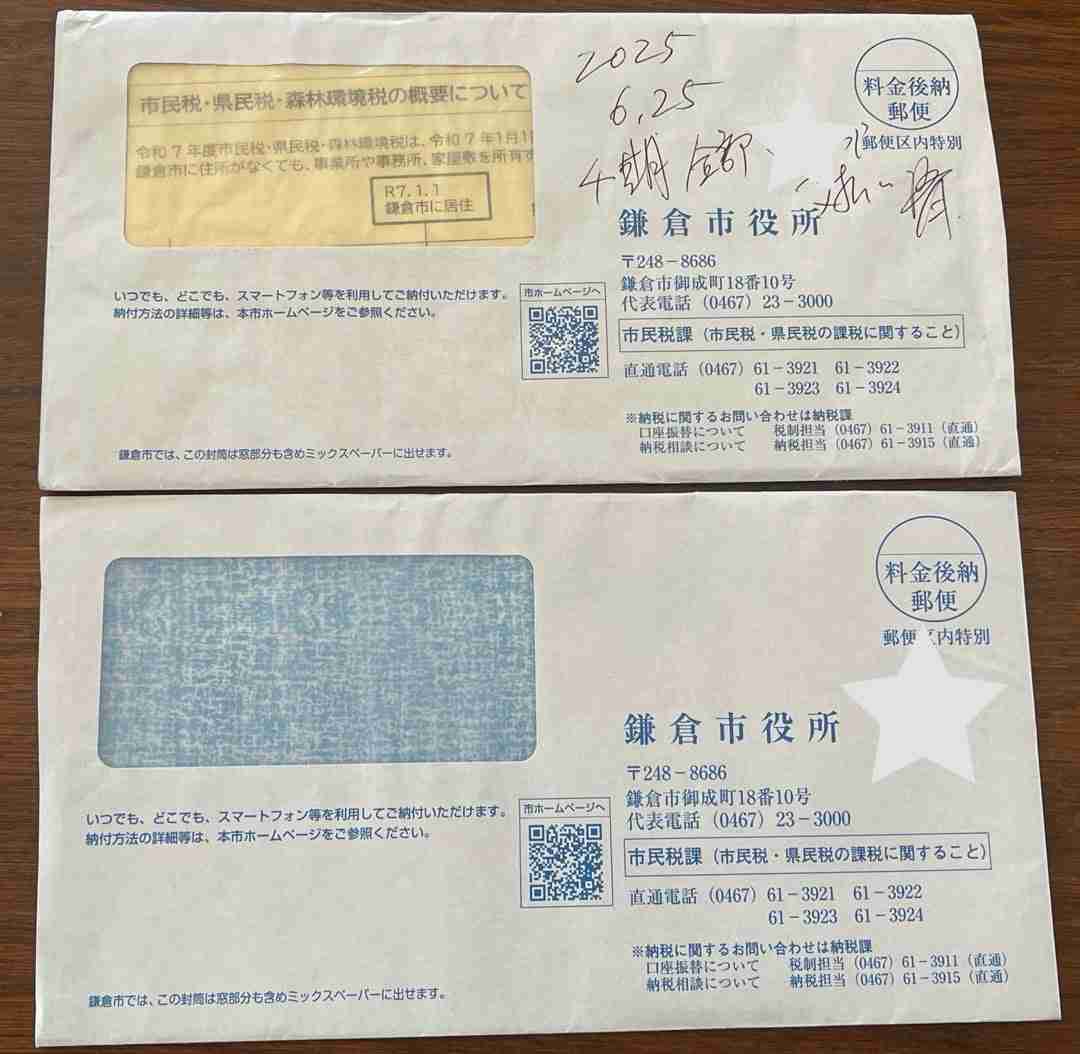 市民税・県民税・森林環境税の概要について
令和7年度市民税・県民税・森林環境税は、令和7年1月1
鎌倉市に住所がなくても、事業所や事務所、家屋敷を所有す
R7.1.1
鎌倉市に居住
2025
6.25
4期全部、
払い済
料金後納
郵便
郵便区内特別
鎌倉市役所
〒248-8686
鎌倉市御成町18番10号
代表電話(0467)23-3000
市民税課(市民税・県民税の課税に関すること)
直通電話(0467)61-3921 61-3922
61-3923 61-3924
※納税に関するお問い合わせは納税課
口座振替について 税制担当(0467)61-3911(直通)
納税相談について 納税担当(0467)61-3915(直通)
いつでも、どこでも、スマートフォン等を利用してご納付いただけます。
納付方法の詳細等は、本市ホームページをご参照ください。
市ホームページへ
鎌倉市では、この封筒は窓部分も含めミックスペーパーに出せます。
料金後納
郵便
郵便区内特別
鎌倉市役所
〒248-8686
鎌倉市御成町18番10号
代表電話(0467)23-3000
市民税課(市民税・県民税の課税に関すること)
直通電話(0467)61-3921 61-3922
61-3923 61-3924
※納税に関するお問い合わせは納税課
口座振替について 税制担当(0467)61-3911(直通)
納税相談について 納税担当(0467)61-3915(直通)
いつでも、どこでも、スマートフォン等を利用してご納付いただけます。
納付方法の詳細等は、本市ホームページをご参照ください。
市ホームページへ
鎌倉市では、この封筒は窓部分も含めミックスペーパーに出せます。